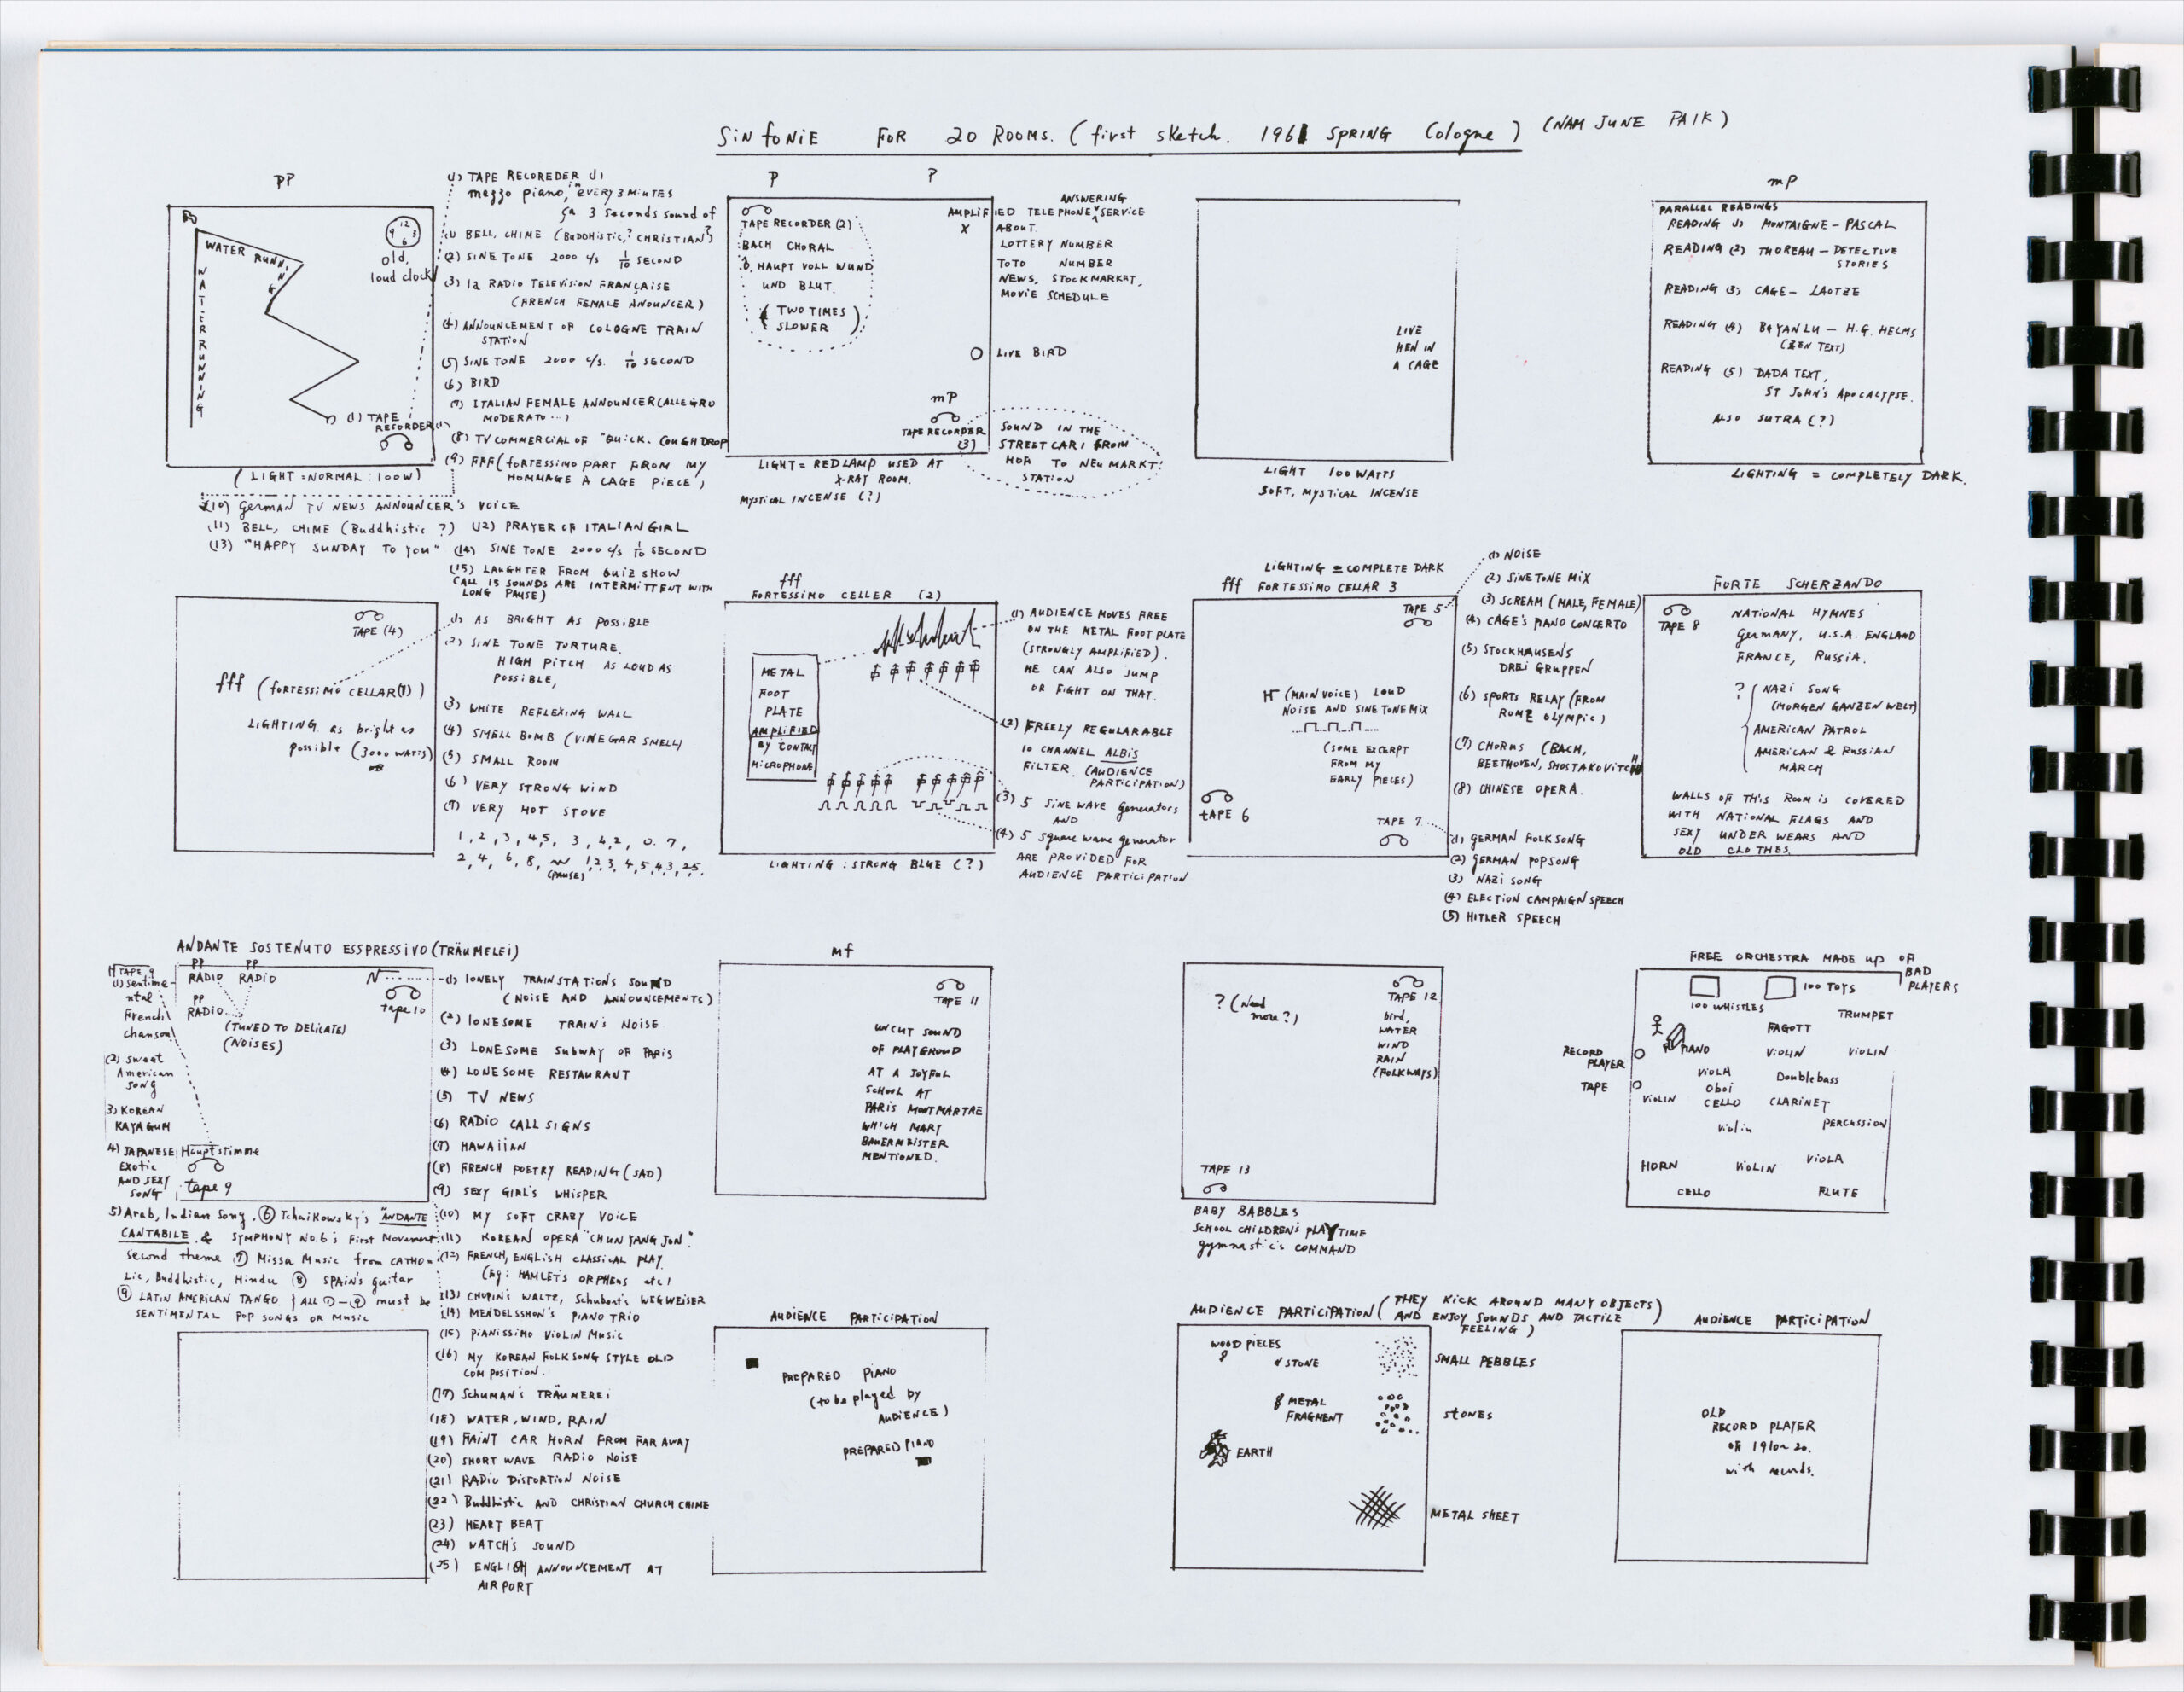 SINFONIE FOR 20 ROOMS. (first sketch. 1961 SPRING Cologne) (NAM JUNE PAIK)
PP
WATER RUNNING
WATER RUNNING
9 12 3 6
old,
loud clock
(1) TAPE
RECORDER(1)
(LIGHT=NORMAL:100W)
(1) TAPE RECOREDER (1)
mezzo piano, "EVERY 3 MINTES
3 SECONDS SOUND OF
(1) BELL, CHIME (BUDDHISTIC,? CHRISTIAN?)
(2) SINE TONE 2000 c/s 1/10 SECOND
(3) la RADIO TELEVISION FRANÇAISE
(FRENCH FEMALE ANOUNCER)
(4) ANNOUNCEMENT OF COLOGNE TRAIN
STATION
(5) SINE TONE 2000 c/s. 1/10 SECOND
(6) BIRD
(7) ITALIAN FEMALE ANNOUNCER (ALLEGRO
MODERATO...)
(8) TV COMMERCIAL OF "QUICK. COUGH DROP
(9) FFF (FORTESSIMO PART FROM MY
HOMMAGE A CAGE PIECE)
(10) German TV NEWS ANNOUNCER'S VOICE
(11) BELL, CHIME (Buddhistic ?) (12) PRAYER OF ITALIAN GIRL
(13) "HAPPY SUNDAY TO YOU" (14) SINE TONE 2000 c/s 1/10 SECOND
(15) LAUGHTER FROM QUIZ SHOW
(ALL 15 SOUNDS ARE INTERMITTENT WITH
LONG PAUSE)
P
P
TAPE RECORDER (2)
BACH CHORAL
O. HAUPT VOLL WUND
UND BLUT.
(TWO TIMES
SLOWER)
AMPLIFIED TELEPHONE ANSWERING SERVICE
X ABOUT
LOTTERY NUMBER
TOTO NUMBER
NEWS, STOCKMARKET,
MOVIE SCHEDULE
LIVE BIRD
mP
TAPE RECORDER
(3)
SOUND IN THE
STREET CAR, FROM
HOF TO NEU MARKT
STATION
LIGHT = RED LAMP USED AT
X-RAY ROOM.
MYSTICAL INCENSE (?)
LIVE
HEN IN
A CAGE
LIGHT 100 WATTS
SOFT, MYSTICAL INCENSE
mP
PARALLEL READINGS
READING (1) MONTAIGNE-PASCAL
READING (2) THOREAU-DETECTIVE
STORIES
READING (3) CAGE-LAOTZE
READING (4) BAYANLU - H.G. HELMS
(ZEN TEXT)
READING (5) DADA TEXT,
ST JOHN'S APOCALYPSE.
ALSO SUTRA (?)
LIGHTING = COMPLETELY DARK.
TAPE (4)
fff (FORTESSIMO CELLAR(1))
LIGHTING as bright as
possible (3000 WATTS)
(1) AS BRIGHT AS POSSIBLE
(2) SINE TONE TORTURE.
HIGH PITCH AS LOUD AS
POSSIBLE,
(3) WHITE REFLEXING WALL
(4) SMELL BOMB (VINEGAR SMELL)
(5) SMALL ROOM
(6) VERY STRONG WIND
(7) VERY HOT STOVE
1, 2, 3, 4,5, 3, 4,2, 0. 7,
2, 4, 6, 8, 1,2,3, 4,5,4,3, 25.
(PAUSE)
fff
FORTESSIMO CELLER (2)
METAL
FOOT
PLATE
AMPLIFIED
BY CONTACT
MICROPHONE
LIGHTING : STRONG BLUE (?)
(1) AUDIENCE MOVES FREE
ON THE METAL FOOT PLATE
(STRONGLY AMPLIFIED).
HE CAN ALSO JUMP
OR FIGHT ON THAT.
(2) FREELY REGULARABLE
10 CHANNEL ALBIS
FILTER. (AUDIENCE
PARTICIPATION)
(3) 5 SINE WAVE Generators
AND
(4) 5 square wave generator
ARE PROVIDED FOR
AUDIENCE PARTICIPATION
LIGHTING = COMPLETE DARK
fff FORTESSIMO CELLAR 3
TAPE 5
(MAIN VOICE) LOUD
NOISE AND SINE TONE MIX
(SOME EXCERPT
FROM MY
EARLY PIECES)
TAPE 6
TAPE 7
(1) NOISE
(2) SINE TONE MIX
(3) SCREAM (MALE, FEMALE)
(4) CAGE'S PIANO CONCERTO
(5) STOCKHAUSEN'S
DREI GRUPPEN
(6) SPORTS RELAY (FROM
ROME OLYMPIC)
(7) CHORUS (BACH,
BEETHOVEN, SHOSTAKOVITCH
(8) CHINESE OPERA.
(1) GERMAN FOLKSONG
(2) GERMAN POPSONG
(3) NAZI SONG
(4) ELECTION CAMPAIGN SPEECH
(5) HITLER SPEECH
FORTE SCHERZANDO
TAPE 8
NATIONAL HYMNES
Germany, U.S.A. ENGLAND
FRANCE, RUSSIA.
? NAZI SONG
(MORGEN GANZEN WELT)
AMERICAN PATROL
AMERICAN & RUSSIAN
MARCH
WALLS OF THIS ROOM IS COVERED
WITH NATIONAL FLAGS AND
SEXY UNDER WEARS AND
OLD CLOTHES.
ANDANTE SOSTENUTO ESSPRESSIVO (TRÄUMELEI)
H TAPE 9
(1) sentime-
ntal
French
chanson
(2) sweet
American
song
3) KOREAN
KAYAGUM
4) JAPANESE
Exotic
AND SEXY
SONG
PP
RADIO
PP
RADIO
PP
RADIO
(TUNED TO DELICATE)
(NOISES)
N
tape 10
Hauptstimme
tape 9
5) Arab, Indian Song. ⑥ Tchaikowsky's "ANDANTE
CANTABILE & SYMPHONY NO.6's First Movement
second theme ⑦ Missa Music from CATHO-
Lic, Buddhistic, Hindu ⑧ SPAIN'S guitar
⑨ LATIN AMERICAN TANGO } ALL ①-⑨ must be
SENTIMENTAL POP SONGS OR MUSIC
(1) LONELY TRAINSTATION'S SOUND
(NOISE AND ANNOUNCEMENTS)
(2) LONESOME TRAIN'S NOISE
(3) LONESOME SUBWAY OF PARIS
(4) LONESOME RESTAURANT
(5) TV NEWS
(6) RADIO CALL SIGNS
(7) HAWAIIAN
(8) FRENCH POETRY READING (SAD)
(9) SEXY GIRL'S WHISPER
(10) MY SOFT CRAZY VOICE
(11) KOREAN OPERA "CHUN YANG JON".
(12) FRENCH, ENGLISH CLASSICAL PLAY.
(Eg: HAMLET'S ORPHEUS etc)
(13) CHOPIN'S WALTZ, Schubert's WEGWEISER
(14) MENDELSSHON'S PIANO TRIO
(15) PIANISSIMO VIOLIN MUSIC
(16) MY KOREAN FOLKSONG STYLE OLD
COMPOSITION.
(17) SCHUMAN'S TRÄUMEREI
(18) WATER, WIND, RAIN
(19) FAINT CAR HORN FROM FAR AWAY
(20) SHORT WAVE RADIO NOISE
(21) RADIO DISTORTION NOISE
(22) Buddhistic AND CHRISTIAN CHURCH CHIME
(23) HEART BEAT
(24) WATCH'S SOUND
(25) ENGLISH ANNOUNCEMENT AT
AIRPORT
mf
TAPE 11
UNCUT SOUND
OF PLAYGROUND
AT A JOYFUL
SCHOOL AT
PARIS MONTMARTRE
WHICH MARY
BAUERMEISTER
MENTIONED.
? (Need
more?)
TAPE 12
bird,
WATER
WIND
RAIN
(FOLKWAYS)
TAPE 13
BABY BABBLES
SCHOOL CHILDREN'S PLAYTIME
gymnastic's COMMAND
FREE ORCHESTRA MADE UP OF
BAD
PLAYERS
100 WHISTLES
100 TOYS
TRUMPET
FAGOTT
PIANO
VIOLIN
VIOLIN
RECORD
PLAYER
TAPE
VIOLA
Doublebass
Oboi
VIOLIN
CELLO
CLARINET
Violin
PERCUSSION
HORN
VIOLIN
VIOLA
CELLO
FLUTE
AUDIENCE PARTICIPATION
PREPARED PIANO
(to be played by
AUDIENCE)
PREPARED PIANO
AUDIENCE PARTICIPATION (THEY KICK AROUND MANY OBJECTS)
AND ENJOY SOUNDS AND TACTILE
FEELING)
WOOD PIECES
STONE
SMALL PEBBLES
METAL
FRAGMENT
STONES
EARTH
METAL SHEET
AUDIENCE PARTICIPATION
OLD
RECORD PLAYER
OF 1910~20.
with records.